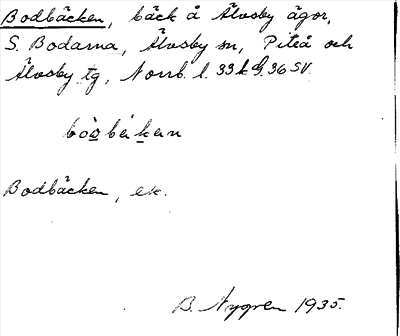 Bodbäcken, bäck å Älvsby ägor,
S. Bodarna, Älvsby sn, Piteå och
Älvsby tg, Norrb. l. 33 k 36 SV.
Bodbäcken, ek.
B. Nygren 1935.